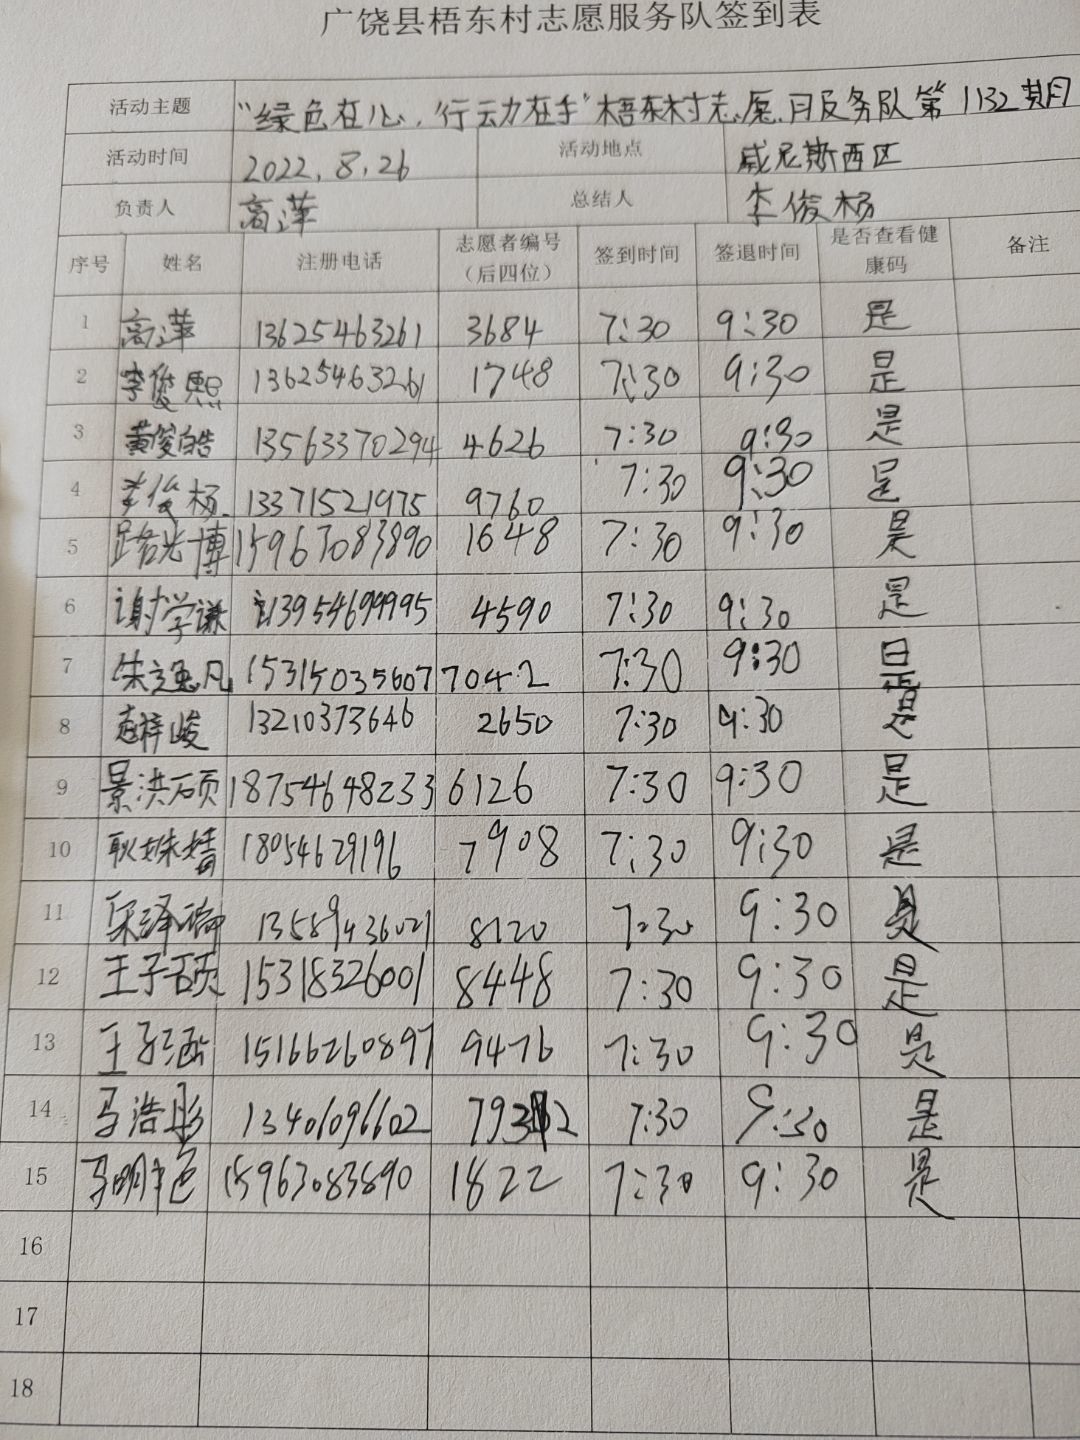 广饶县梧东村志愿服务队签到表
活动主题 "绿色在心,行动在手"梧东村志愿服务队第1132期
活动时间 2022.8.26 活动地点 威尼斯西区
负责人 高萍 总结人 李俊杨
序号 姓名 注册电话 志愿者编号(后四位) 签到时间 签退时间 是否查看健康码 备注
1 高萍 13625463261 3684 7:30 9:30 是
2 李俊熙 13625463261 1748 7:30 9:30 是
3 黄俊皓 13563370294 4626 7:30 9:30 是
4 李俊杨 13371521975 9760 7:30 9:30 是
5 路光博 15963083890 1648 7:30 9:30 是
6 谢学谦 13954699995 4590 7:30 9:30 是
7 朱逸凡 15315035607 7042 7:30 9:30 是
8 赵梓峻 13210373646 2650 7:30 9:30 是
9 景洪硕 18754648233 6126 7:30 9:30 是
10 耿姝婧 18054629196 7908 7:30 9:30 是
11 宋泽瑞 13589436021 8120 7:30 9:30 是
12 王子硕 15318326001 8448 7:30 9:30 是
13 王子涵 15166260897 9476 7:30 9:30 是
14 马浩彤 13406096602 7932 7:30 9:30 是
15 马明 15963083890 1822 7:30 9:30 是
16
17
18